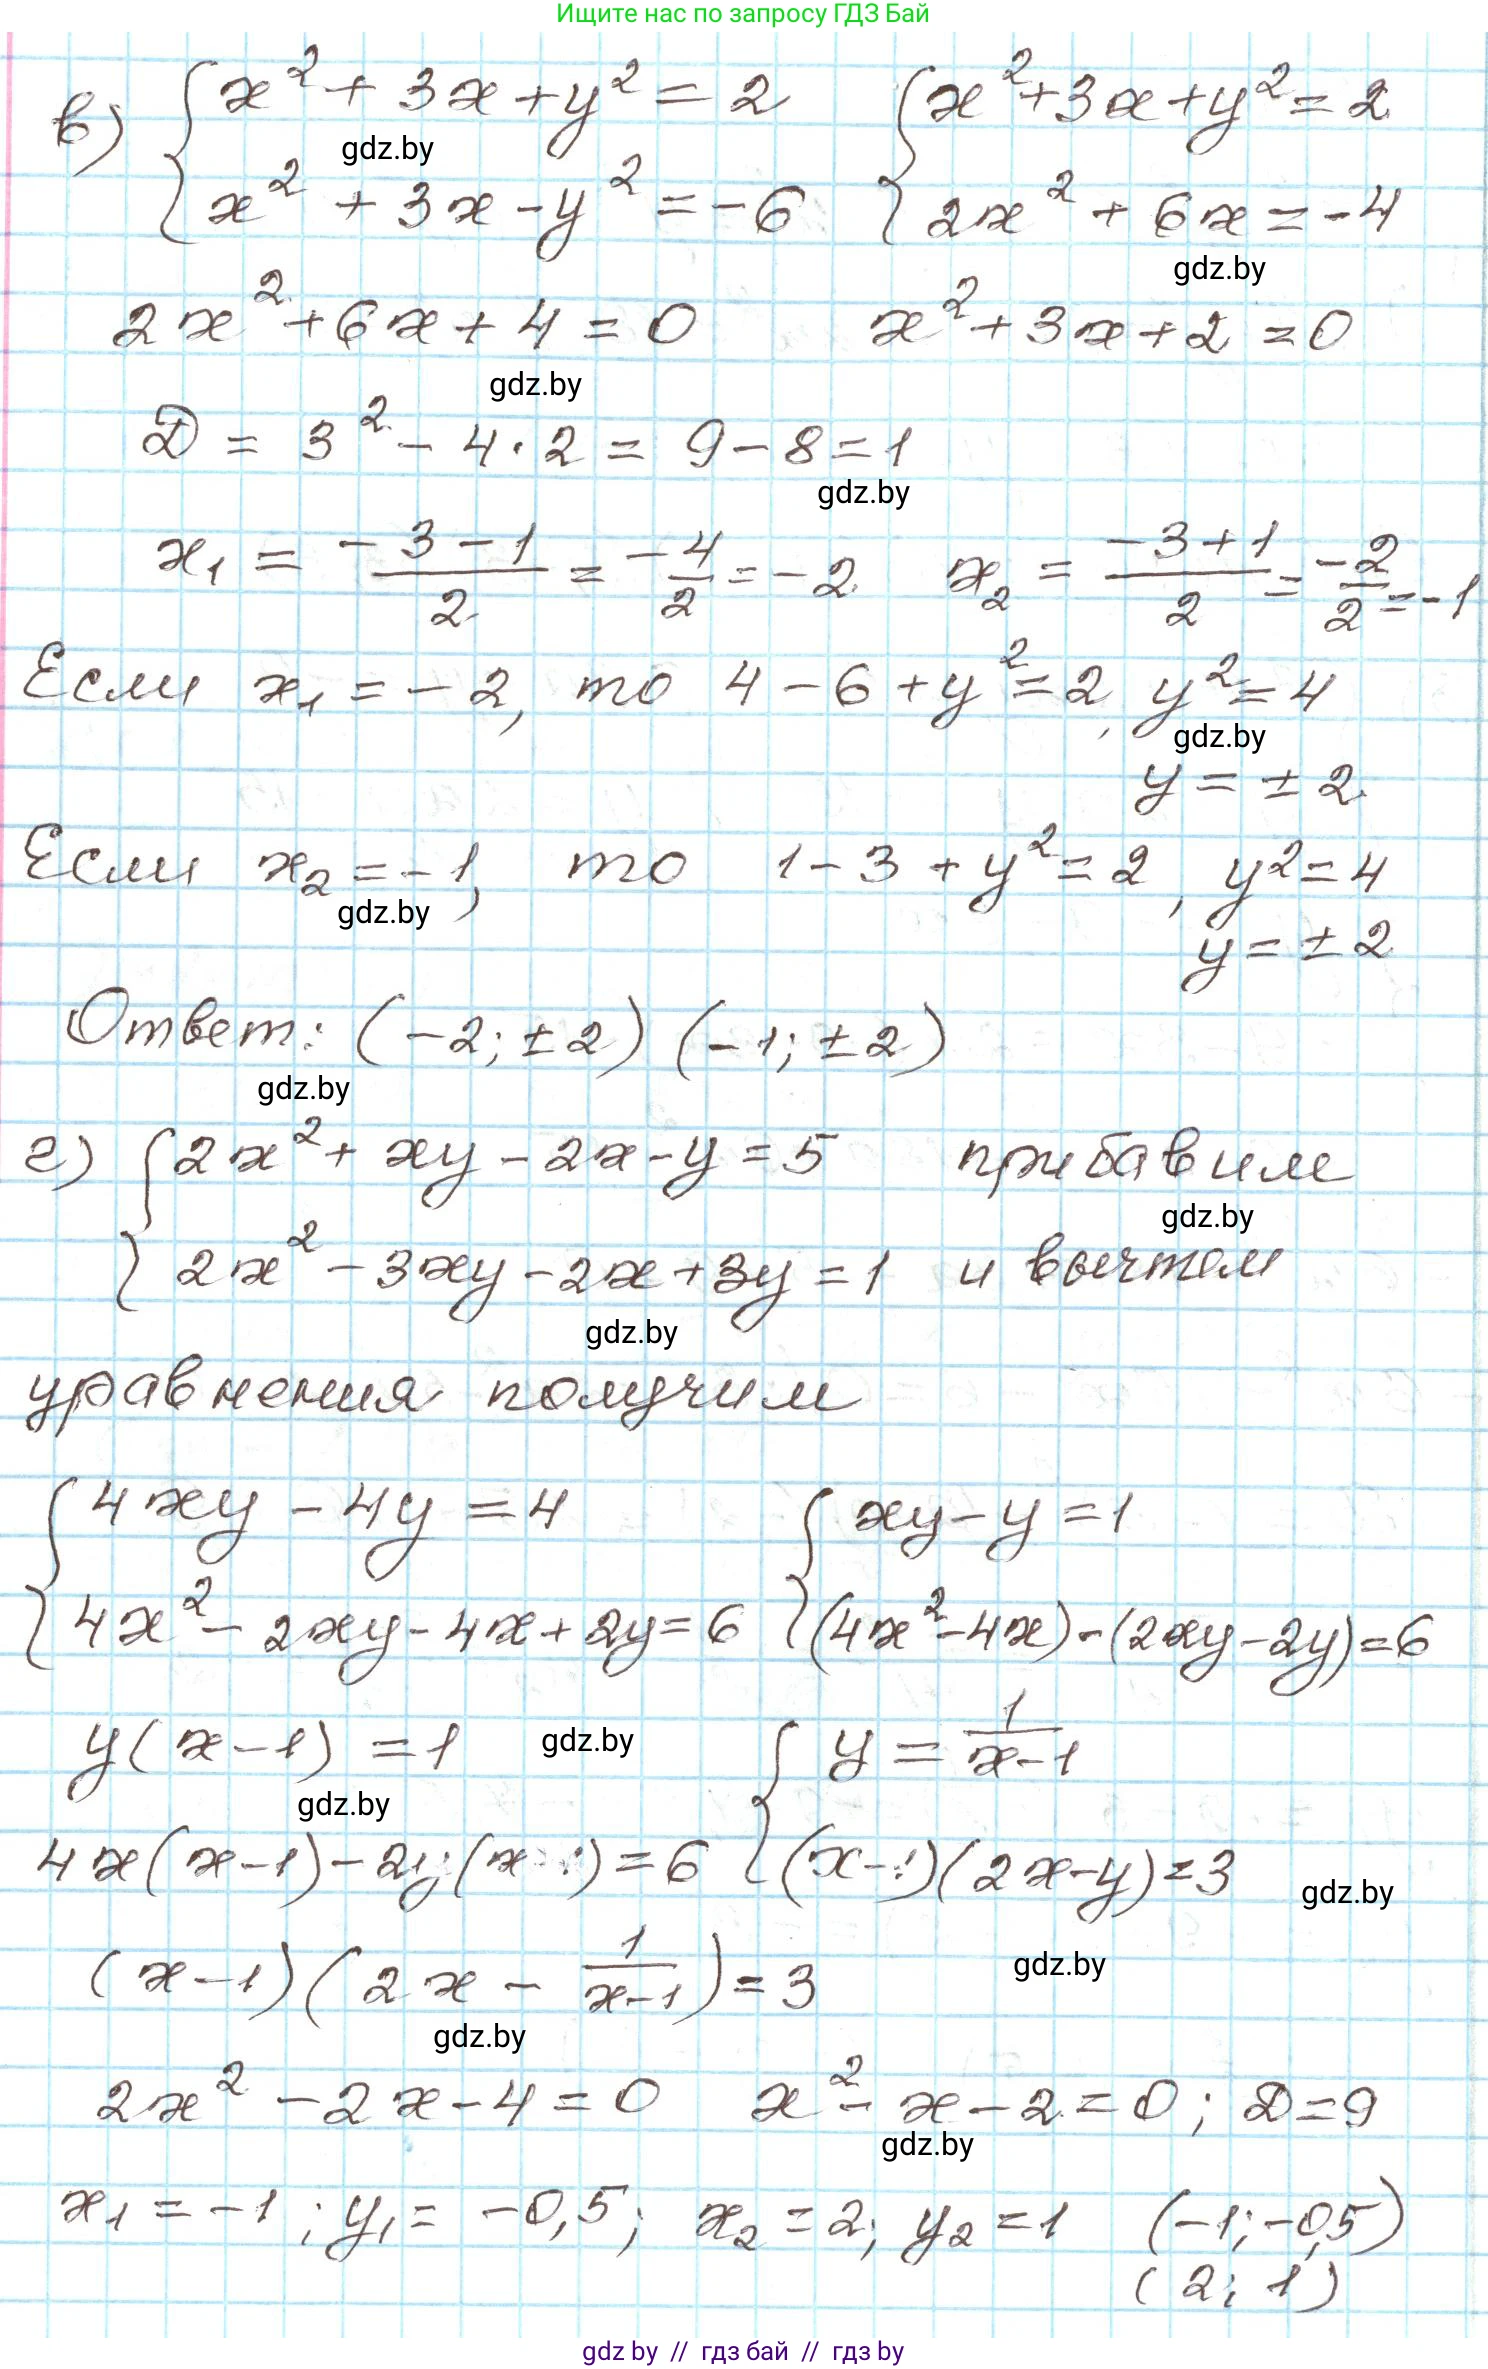 Ищите нас по запросу ГДЗ Бай
в) { x² + 3x + y² = 2 { x² + 3x + y² = 2
gdz.by
x² + 3x - y² = -6 2x² + 6x = -4
gdz.by
2x² + 6x + 4 = 0 x² + 3x + 2 = 0
gdz.by
D = 3² - 4·2 = 9 - 8 = 1
gdz.by
x₁ = (-3-1)/2 = -4/2 = -2 x₂ = (-3+1)/2 = -2/2 = -1
Если x₁ = -2, то 4 - 6 + y² = 2, y² = 4
gdz.by
y = ± 2
Если x₂ = -1, то 1 - 3 + y² = 2, y² = 4
gdz.by
y = ± 2
Ответ: (-2; ±2) (-1; ±2)
gdz.by
г) { 2x² + xy - 2x - y = 5 прибавим
gdz.by
2x² - 3xy - 2x + 3y = 1 и вычтем
gdz.by
уравнения получим
{ 4xy - 4y = 4 { xy - y = 1
4x² - 2xy - 4x + 2y = 6 (4x² - 4x) - (2xy - 2y) = 6
y(x-1) = 1 gdz.by { y = 1/(x-1)
gdz.by
4x(x-1) - 2y(x-1) = 6 (x-1)(2x-y) = 3
gdz.by
(x-1)(2x - 1/(x-1)) = 3
gdz.by
gdz.by
2x² - 2x - 4 = 0 x² - x - 2 = 0; D = 9
gdz.by
x₁ = -1; y₁ = -0,5; x₂ = 2; y₂ = 1 (-1; -0,5)
(2; 1)
gdz.by // гдз бай // гдз by